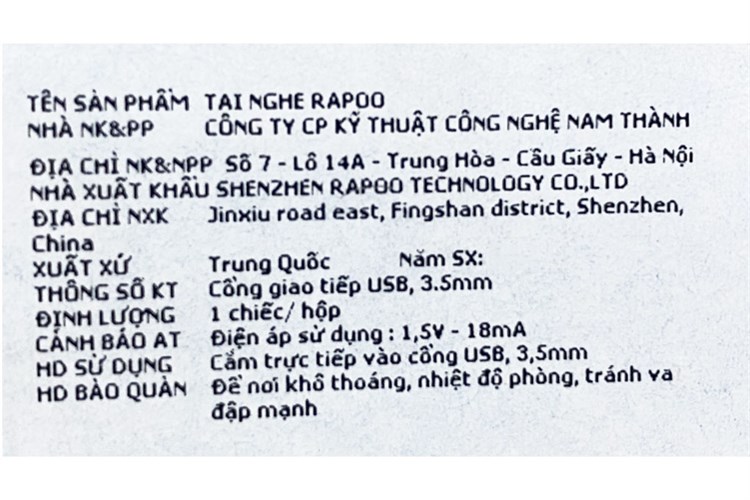 TÊN SẢN PHẨM TAI NGHE RAPOO
NHÀ NK&PP CÔNG TY CP KỸ THUẬT CÔNG NGHỆ NAM THÀNH
ĐỊA CHỈ NK&NPP Số 7 - Lô 14A - Trung Hòa - Cầu Giấy - Hà Nội
NHÀ XUẤT KHẨU SHENZHEN RAPOO TECHNOLOGY CO.,LTD
ĐỊA CHỈ NXK Jinxiu road east, Fingshan district, Shenzhen,
China
XUẤT XỨ Trung Quốc Năm SX:
THÔNG SỐ KT Cổng giao tiếp USB, 3.5mm
ĐỊNH LƯỢNG 1 chiếc/ hộp
CẢNH BÁO AT Điện áp sử dụng : 1,5V - 18mA
HD SỬ DỤNG Cắm trực tiếp vào cổng USB, 3,5mm
HD BẢO QUẢN Để nơi khô thoáng, nhiệt độ phòng, tránh va
đập mạnh